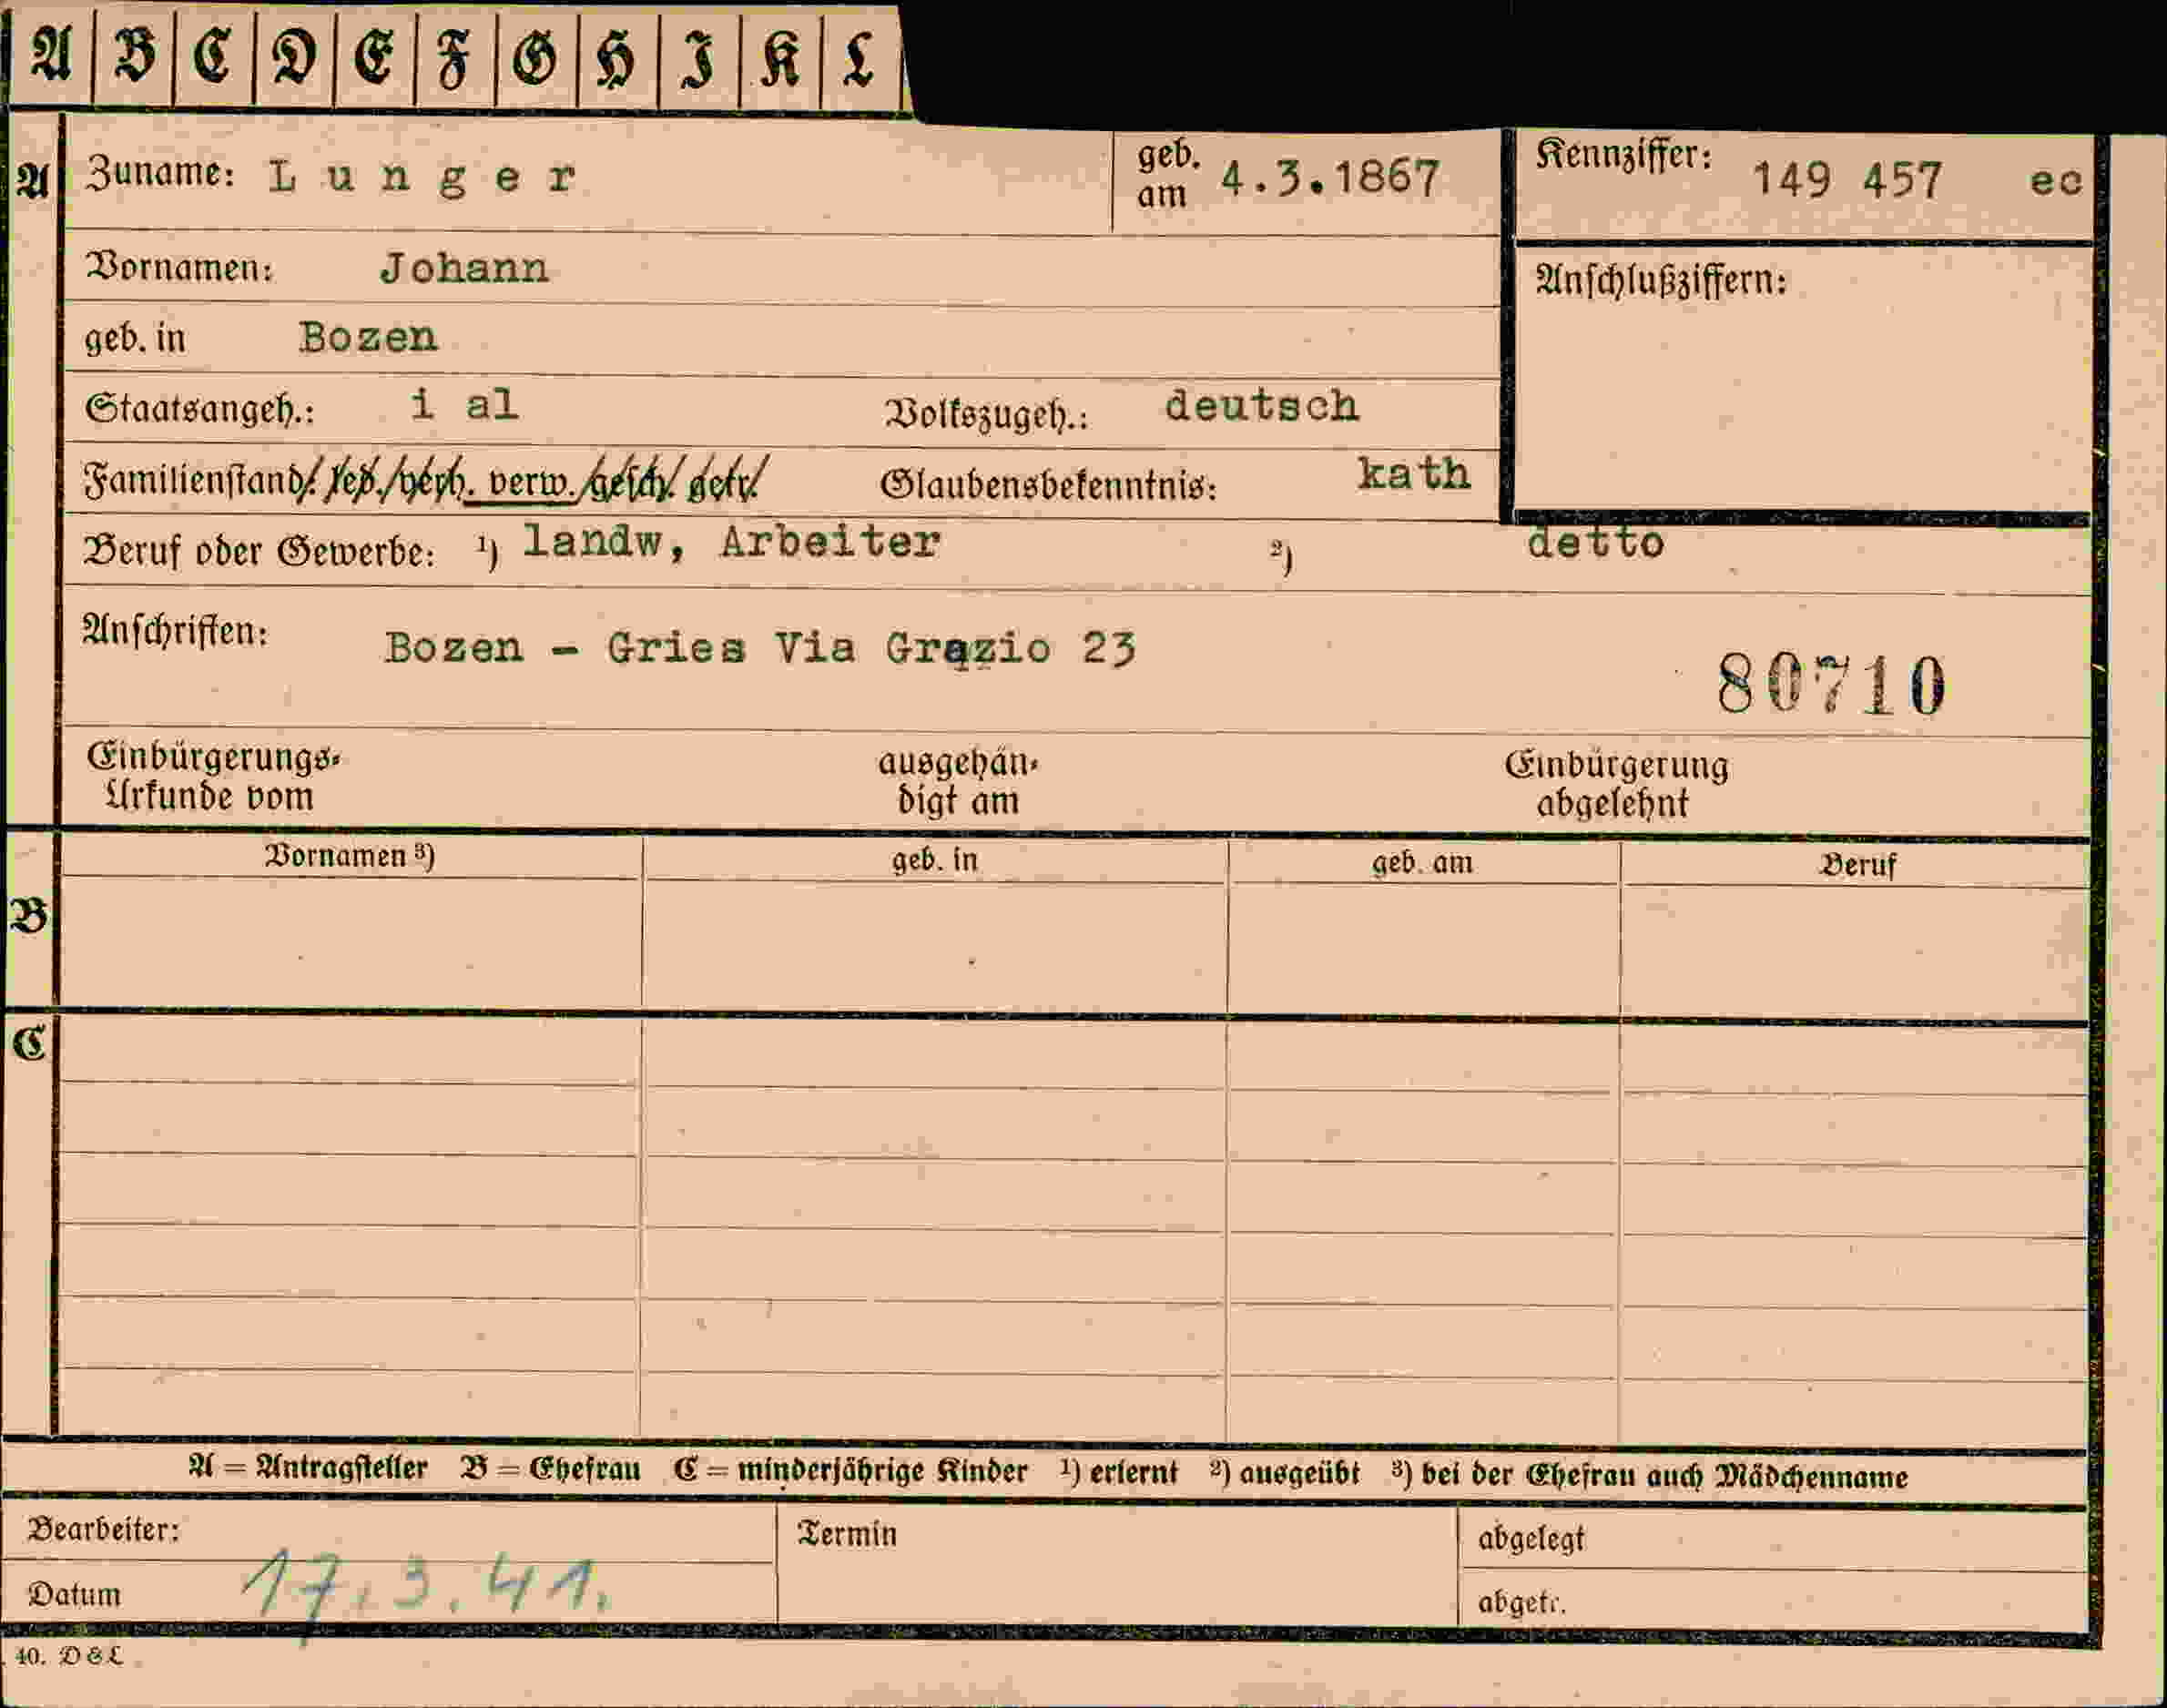 A B C D E F G H I K L
A Zuname: Lunger geb. am 4.3.1867 Kennziffer: 149 457 ec
Vornamen: Johann Anschlußziffern:
geb. in Bozen
Staatsangeh.: i al Volkszugeh.: deutsch
Familienstand: led. verh. verw. gesch. getr. Glaubensbekenntnis: kath
Beruf oder Gewerbe: ¹) landw, Arbeiter ²) detto
Anschriften: Bozen - Gries Via Grazio 23
80710
Einbürgerungs-Urkunde vom ausgehändigt am Einbürgerung abgelehnt
Vornamen ³) geb. in geb. am Beruf
B
C
A = Antragsteller B = Ehefrau C = minderjährige Kinder ¹) erlernt ²) ausgeübt ³) bei der Ehefrau auch Mädchenname
Bearbeiter: Termin abgelegt
Datum 17.3.41. abgetr.
40. D&L